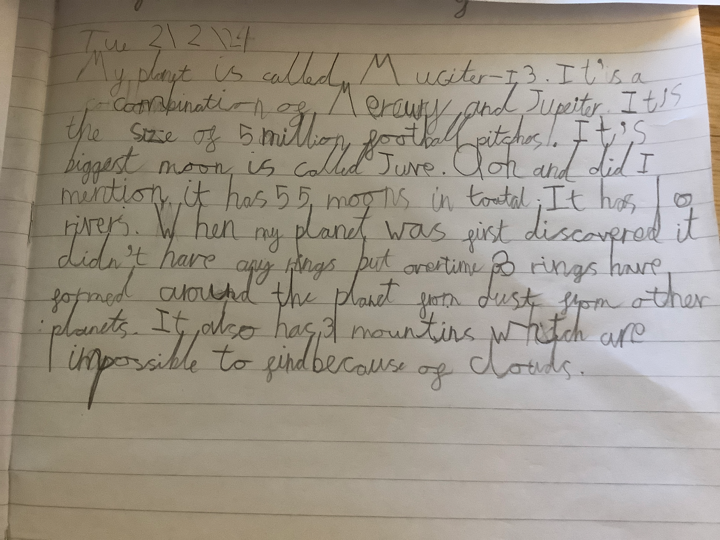 Tue 2\2\24
My planet is called Muciter-I3. It's a
combination of Mercury and Jupeiter. It's
the size of 5 million football pitches!. It's
biggest moon is called Juve. Ooh and did I
mention it has 55 moons in toatal. It has 10
rivers. When my planet was first discovered it
didn't have any rings but overtime 8 rings have
formed around the planet from dust from other
planets. It also has 3 mountins whitch are
impossible to find because of clouds.